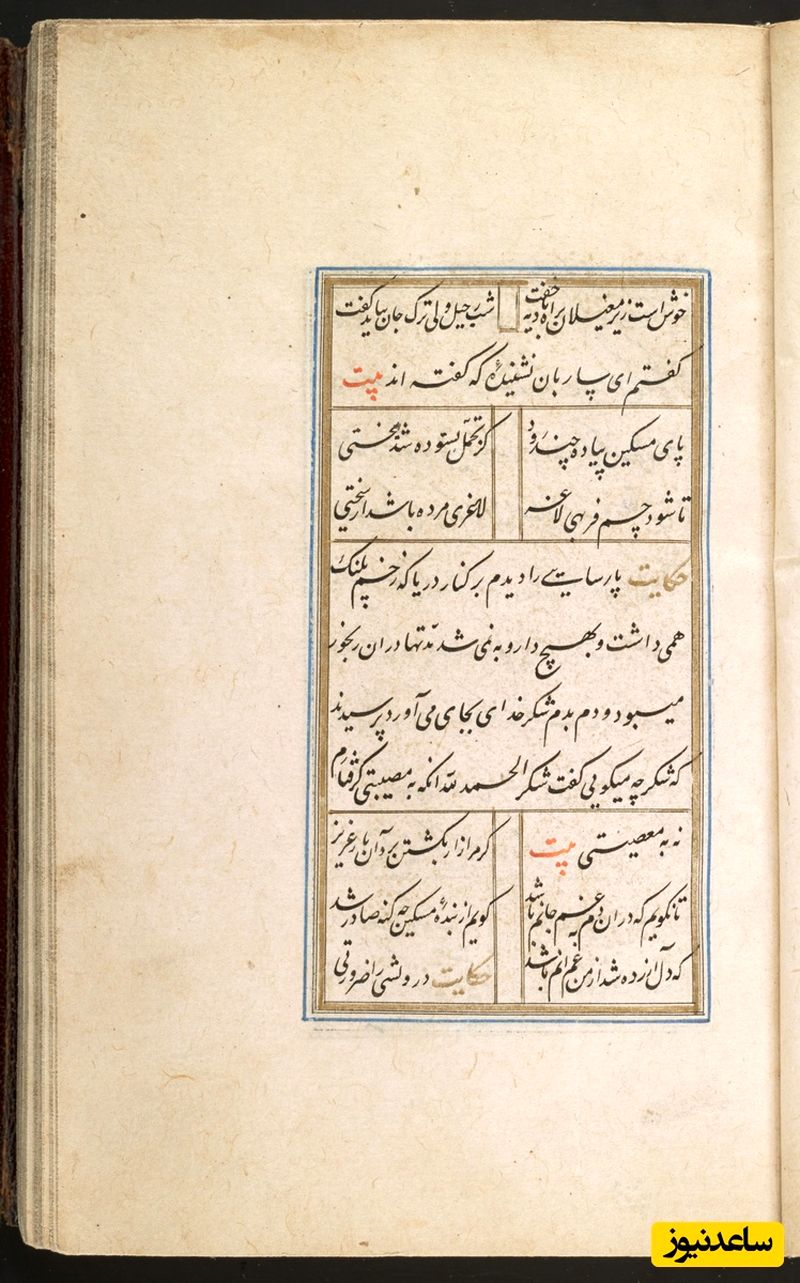 خوش است زیر مغیلان براه بادیه خفت شب رحیل ولی ترک جان بباید گفت
گفتم ای ساربان نشنیدهٔ که گفته اند بیت
پای مسکین پیاده چند رود کز تحمل ستوده شد بختی
تا شود جسم فربهی لاغر لاغری مرده باشد از سختی
حکایت پارسایی را دیدم بر کنار دریا که زخم پلنک
همی داشت و بهیچ دارو به نمی شد مدتها در ان رنجور
میبود و دم بدم شکر خدای بجای می آورد پرسیدند
که شکر چه میکویی کفت شکر الحمد لله انکه به مصیبتی گرفتارم
نه به معصیتی بیت کر مرا زار بکشتن برد آن یار عزیز
تا نکویم که در ان دم به غم جانم باشد کویم از بندهٔ مسکین چه کنه صادر شد
که دل آزرده شد از من غم انم باشد حکایت درویشی را ضرورتی
ساعدنیوز